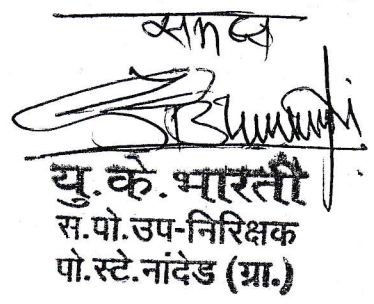 समक्ष
यु.के.भारती
स.पो.उप-निरिक्षक
पो.स्टे.नांदेड (ग्रा.)